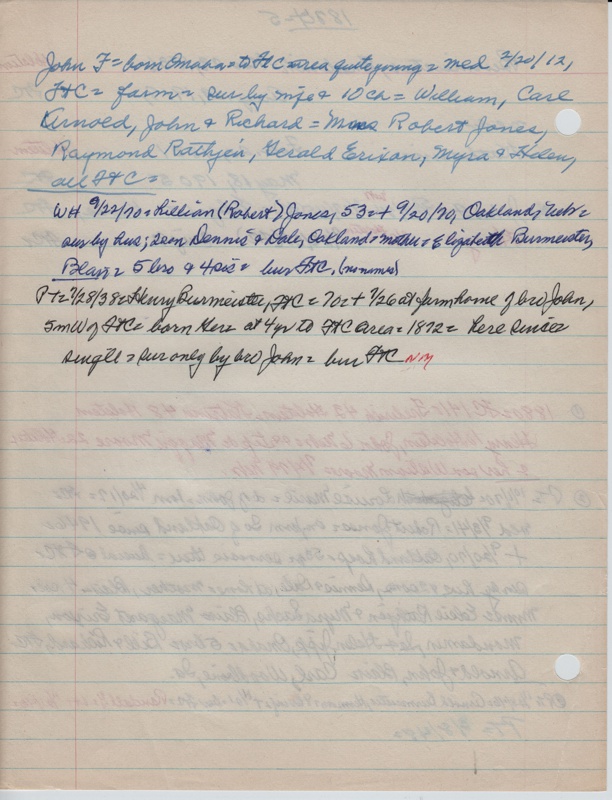 John F = born Omaha = to FtC area quite young = med 2/20/12,
FtC = farm = sur by wife & 10 ch = William, Carl
Arnold, John & Richard = Mmes Robert Jones,
Raymond Rathjen, Gerald Erixon, Myra & Helen,
all FtC =
WH 9/22/70 = Lillian (Robert) Jones, 53 = + 9/20/70, Oakland, Nebr =
sur by hus; sons Dennis & Dale, Oakland = mother = Elizabeth Burmeister,
Blair = 5 bro & 4 sis = bur FtC, (no names)
PT = 7/28/38 = Henry Burmeister, FtC = 70 = + 7/26 at farm home of bro John,
5 m W of FtC = born Ger = at 4 yr to FtC area = 1872 = here since =
single = sur only by bro John = bur FtC NM